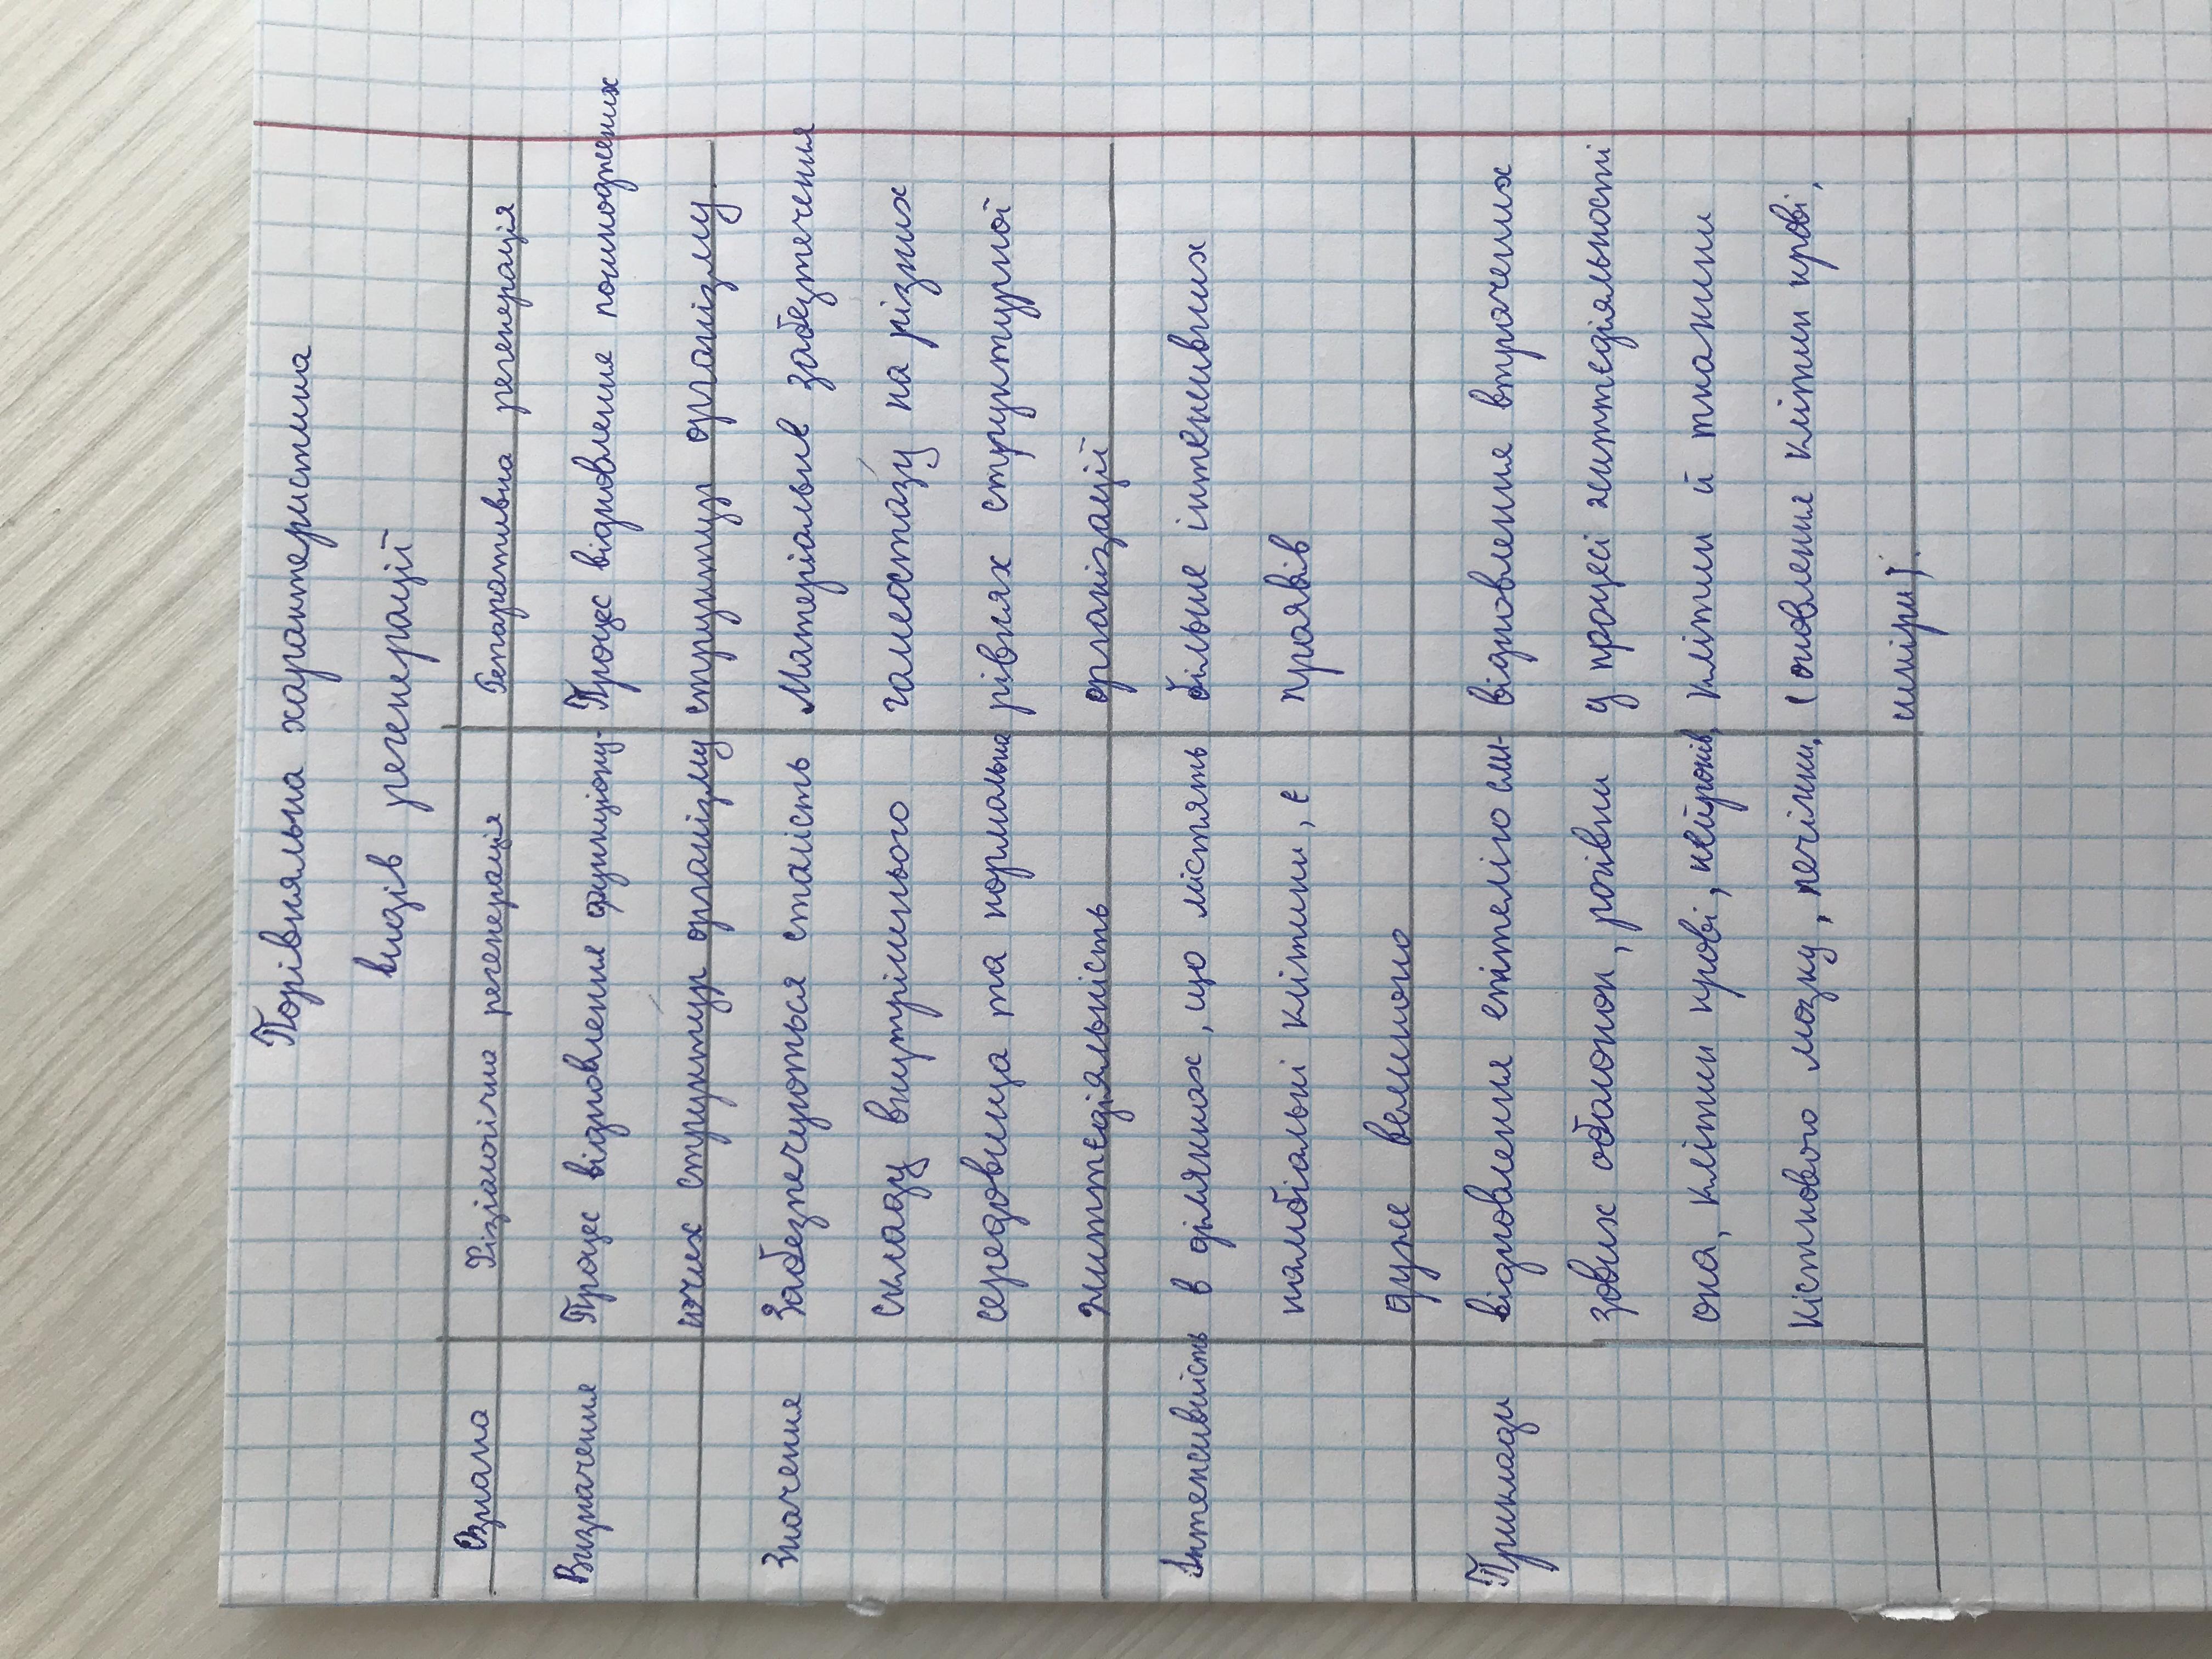 Порівняльна характеристика
видів регенерації
Ознака
Фізіологічна регенерація
Репаративна регенерація
Визначення
Процес відновлення функціону-
ючих структур організму
Процес відновлення пошкоджених
структур організму
Значення
Забезпечуються сталість
складу внутрішнього
середовища та нормальна
життєдіяльність
Матеріальне забезпечення
гомеостазу на різних
рівнях структурної
організації
Інтенсивність
в ділянках, що містять
камбіальні клітини, є
дуже великою
більше інтенсивних
проявів
Приклади
відновлення епітелію сли-
зових оболонок, рогівки
ока, клітин крові, нейронів,
кісткового мозку, печінки,
відновлення втрачених
у процесі життєдіяльності
клітин й тканини
(оновлення клітин крові,
шкіри).